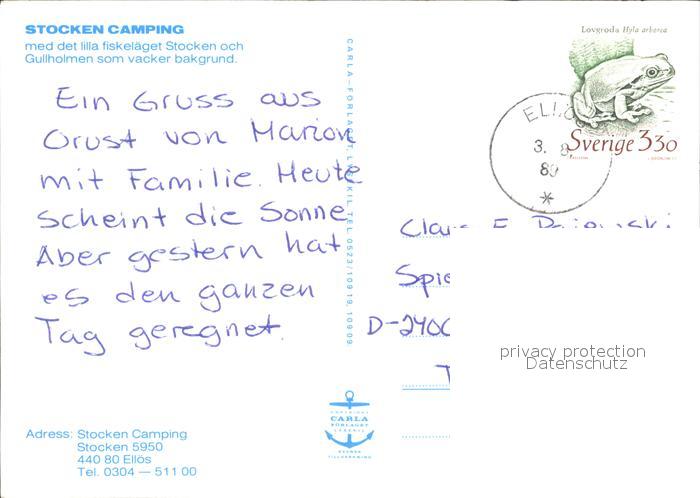 STOCKEN CAMPING
med det lilla fiskeläget Stocken och
Gullholmen som vacker bakgrund.
Ein Gruss aus
Orust von Marion
mit Familie. Heute
scheint die Sonne
Aber gestern hat
es den ganzen
Tag geregnet.
Adress: Stocken Camping
Stocken 5950
440 80 Ellös
Tel. 0304 — 511 00
CARLA-FÖRLAGET, LYSEKIL. TEL. 0523/10919, 10909
CARLA
FÖRLAGET
LYSEKIL
Lövgroda Hyla arborea
Sverige 330
ELLÖS
3. 8
89
D-2400
privacy protection
Datenschutz